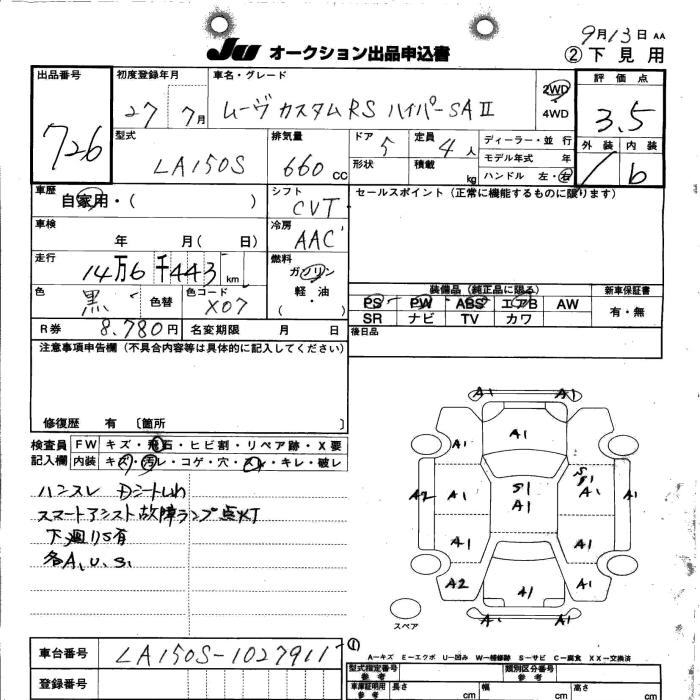 9月13日 AA
JU オークション出品申込書
② 下見用
出品番号
726
初度登録年月
27 7月
車名・グレード
ムーヴ カスタムRS ハイパーSAⅡ
2WD
4WD
評価点
3.5
型式
LA150S
排気量
660 CC
ドア
5
定員
4人
形状
積載
kg
ディーラー・並行
モデル年式 年
ハンドル 左・右
外装
内装
b
車歴
自家用・( )
シフト
CVT
セールスポイント (正常に機能するものに限ります)
車検
年 月( 日)
冷房
AAC
走行
14万6千443 km
燃料
ガソリン
軽・油
( ・ )
色
黒
色替
色コード
X07
装備品 (純正品に限る)
新車保証書
PS PW ABS エアB AW
SR ナビ TV カワ
有・無
R券
8,780円
名変期限 月 日
後日品
注意事項申告欄 (不具合内容等は具体的に記入してください)
修復歴 有 〔箇所 〕
検査員
記入欄
FW キズ・飛石・ヒビ割・リペア跡・X要
内装 キズ・汚レ・コゲ・穴・スレ・キレ・破レ
ハンスレ Dシートしわ
スマートアシスト故障ランプ点灯
下廻りS有
各A.U.S.
A1 A1
A1
A1 A1
A2 A1 S1 A1 A1 A1
A1 A1
A2 A1 A1
A1 A1
スペア
①
A—キズ E—エクボ U—凹み W—補修跡 S—サビ C—腐食 XX—交換済
車台番号
LA150S-1027911
登録番号
型式指定番号
参考
類別区分番号
参考
車庫証明用
参考
長さ
cm
幅
cm
高さ
cm